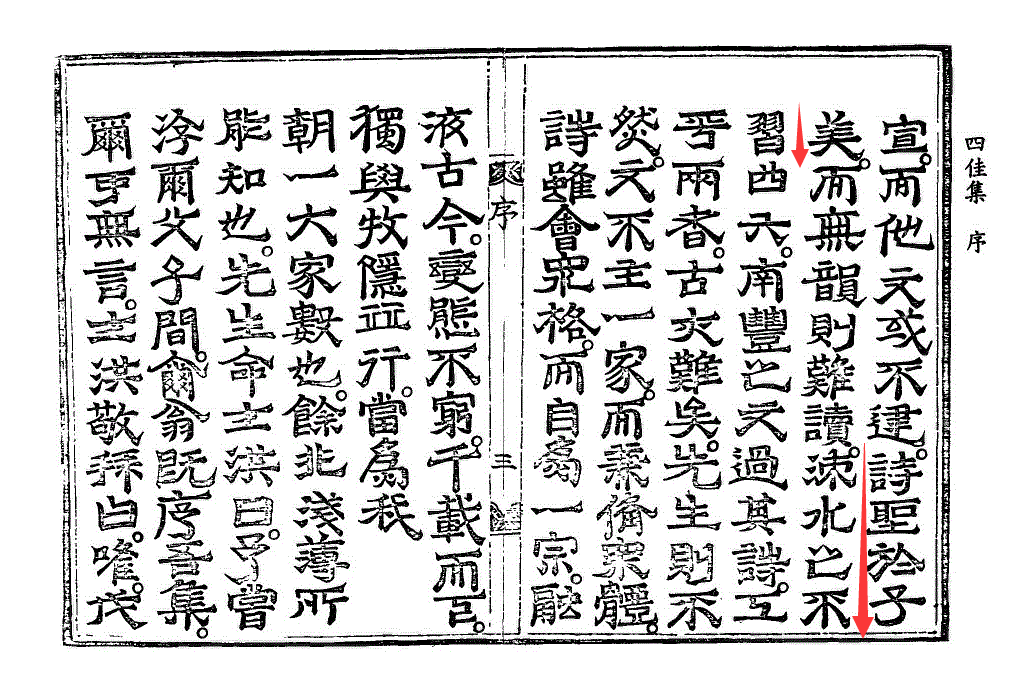 四佳集 序
宣。而他文或不逮。詩聖於子
美。而無韻則難讀。涑水之不
習四六。南豐之文過其詩。工
乎兩者。古亦難矣。先生則不
然。文不主一家。而兼備衆體。
詩雖會衆格。而自爲一宗。融
序 三
液古今。變態不窮。千載而下。
獨與牧隱並行。當爲我
朝一大家數也。餘非淺薄所
能知也。先生命士洪曰。予嘗
游爾父子間。爾翁旣序吾集。
爾可無言。士洪敬拜曰。唯。伏